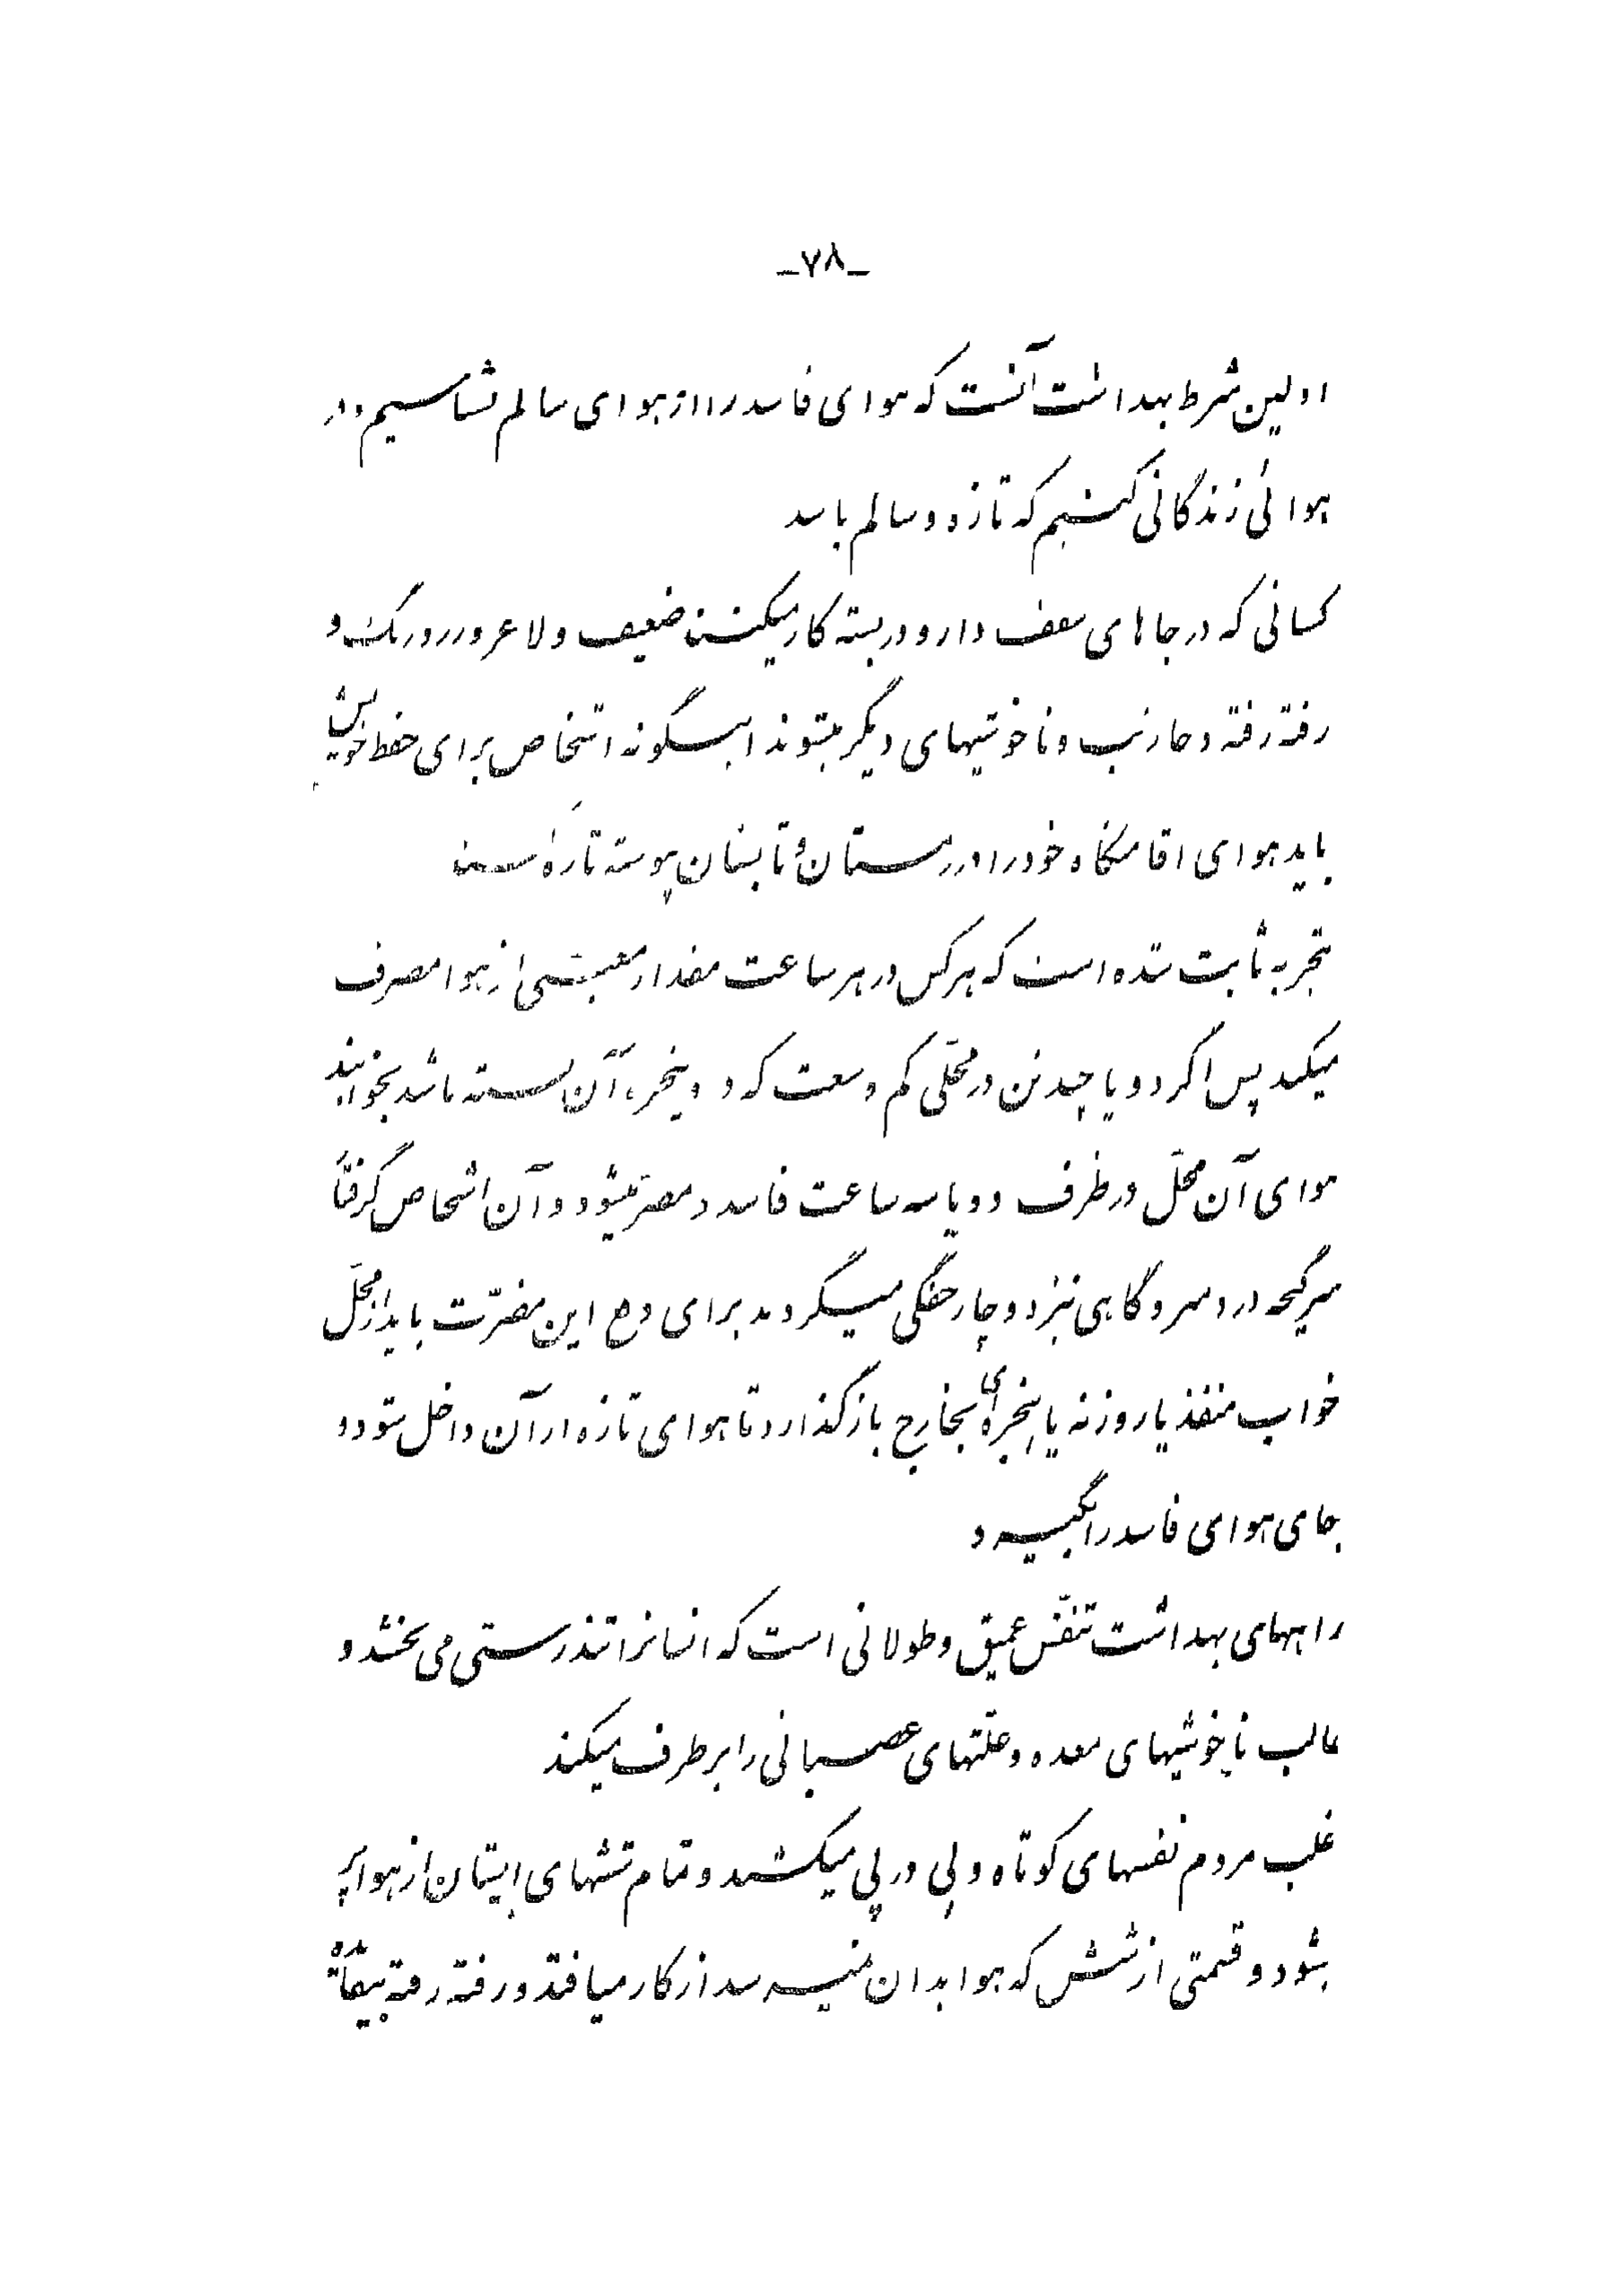 _۷۸_
اولین شرط بهداشت آنست که هوای فاسد را از هوای سالم بشناسیم و در
هوائی زندگانی کنیم که تازه و سالم باشد
کسانی که در جاهای سقف دار و در بسته کار میکنند ضعیف و لاغر و زردرنگند و
رفته رفته دچار تب و ناخوشیهای دیگر میشوند اینگونه اشخاص برای حفظ خویش
باید هوای اقامتگاه خود را در زمستان و تابستان پیوسته تازه کنند
تجربه ثابت شده است که هر کس در هر ساعت مقدار معینی از هوا مصرف
میکند پس اگر دو یا چند تن در محلّی کم وسعت که در و پنجرهٔ آن بسته باشد بخوابند
هوای آن محلّ در ظرف دو یا سه ساعت فاسد و مضرّ میشود و آن اشخاص گرفتار
سرگیجه و دردسر و گاهی نیز دوچار خفگی میگردند برای دفع این مضرّت باید از محلّ
خواب منفذ یا روزنه یا پنجره‌ای بخارج باز گذارد تا هوای تازه از آن داخل شود و
بجای هوای فاسد را بگیرد
راههای بهداشت تنفّس عمیق و طولانی است که انسانرا تندرستی می بخشد و
غالب ناخوشیهای معده و علّتهای عصبانی را برطرف میکند
غلب مردم نفسهای کوتاه و پی در پی میکشند و تمام ششهای ایشان از هوا پر
بشود و قسمتی از شش که هوا بدان نمیرسد از کار میافتد و رفته رفته